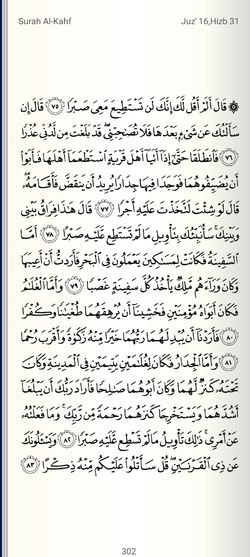 Surah Al-Kahf Juz' 16,Hizb 31
۞ قَالَ أَلَمْ أَقُل لَّكَ إِنَّكَ لَن تَسْتَطِيعَ مَعِىَ صَبْرًا ٧٥ قَالَ إِن
سَأَلْتُكَ عَن شَىْءٍۭ بَعْدَهَا فَلَا تُصَـٰحِبْنِى ۖ قَدْ بَلَغْتَ مِن لَّدُنِّى عُذْرًا
٧٦ فَٱنطَلَقَا حَتَّىٰٓ إِذَآ أَتَيَآ أَهْلَ قَرْيَةٍ ٱسْتَطْعَمَآ أَهْلَهَا فَأَبَوْا۟
أَن يُضَيِّفُوهُمَا فَوَجَدَا فِيهَا جِدَارًا يُرِيدُ أَن يَنقَضَّ فَأَقَامَهُۥ ۖ
قَالَ لَوْ شِئْتَ لَتَّخَذْتَ عَلَيْهِ أَجْرًا ٧٧ قَالَ هَـٰذَا فِرَاقُ بَيْنِى
وَبَيْنِكَ ۚ سَأُنَبِّئُكَ بِتَأْوِيلِ مَا لَمْ تَسْتَطِع عَّلَيْهِ صَبْرًا ٧٨ أَمَّا
ٱلسَّفِينَةُ فَكَانَتْ لِمَسَـٰكِينَ يَعْمَلُونَ فِى ٱلْبَحْرِ فَأَرَدتُّ أَنْ أَعِيبَهَا
وَكَانَ وَرَآءَهُم مَّلِكٌ يَأْخُذُ كُلَّ سَفِينَةٍ غَصْبًا ٧٩ وَأَمَّا ٱلْغُلَـٰمُ
فَكَانَ أَبَوَاهُ مُؤْمِنَيْنِ فَخَشِينَآ أَن يُرْهِقَهُمَا طُغْيَـٰنًا وَكُفْرًا
٨٠ فَأَرَدْنَآ أَن يُبْدِلَهُمَا رَبُّهُمَا خَيْرًا مِّنْهُ زَكَوٰةً وَأَقْرَبَ رُحْمًا
٨١ وَأَمَّا ٱلْجِدَارُ فَكَانَ لِغُلَـٰمَيْنِ يَتِيمَيْنِ فِى ٱلْمَدِينَةِ وَكَانَ
تَحْتَهُۥ كَنزٌ لَّهُمَا وَكَانَ أَبُوهُمَا صَـٰلِحًا فَأَرَادَ رَبُّكَ أَن يَبْلُغَآ
أَشُدَّهُمَا وَيَسْتَخْرِجَا كَنزَهُمَا رَحْمَةً مِّن رَّبِّكَ ۚ وَمَا فَعَلْتُهُۥ
عَنْ أَمْرِى ۚ ذَٰلِكَ تَأْوِيلُ مَا لَمْ تَسْطِع عَّلَيْهِ صَبْرًا ٨٢ وَيَسْـَٔلُونَكَ
عَن ذِى ٱلْقَرْنَيْنِ ۖ قُلْ سَأَتْلُوا۟ عَلَيْكُم مِّنْهُ ذِكْرًا ٨٣
302